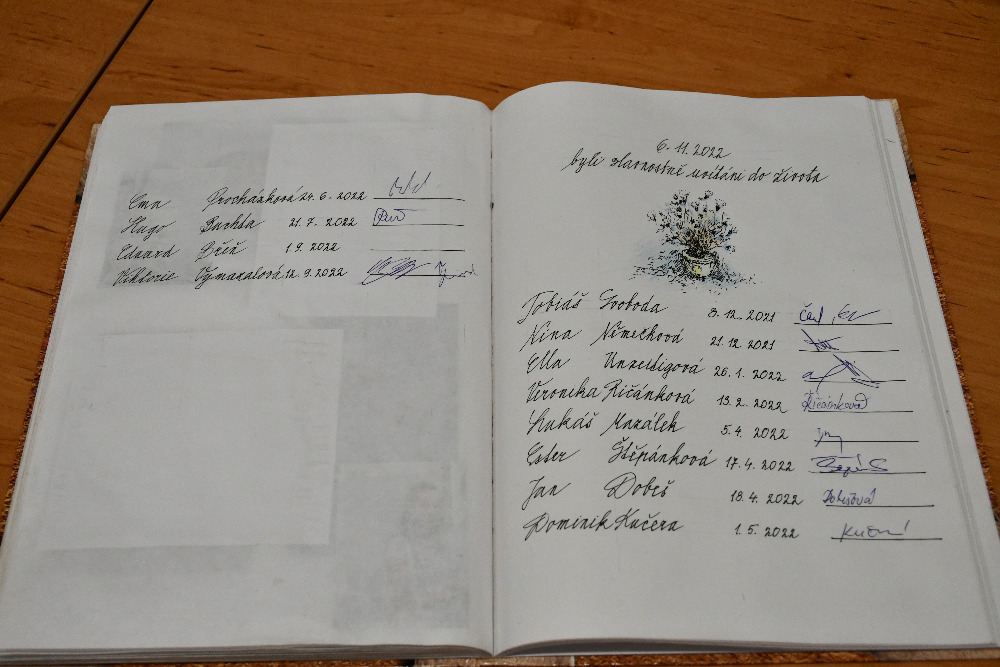 Ema Procházková 24. 6. 2022
Hugo Bachta 21. 7. 2022
Eduard Břeň 1. 9. 2022
Viktorie Vymazalová 12. 9. 2022
6. 11. 2022
byli slavnostně uvítáni do života
Tobiáš Svoboda 8. 12. 2021
Nina Němečková 21. 12. 2021
Ella Unzeitigová 26. 1. 2022
Veronika Řičánková 13. 2. 2022 Řičánková
Lukáš Mazálek 5. 4. 2022
Ester Štěpánková 17. 4. 2022
Jan Dobeš 18. 4. 2022 Dobešová
Dominik Kučera 1. 5. 2022